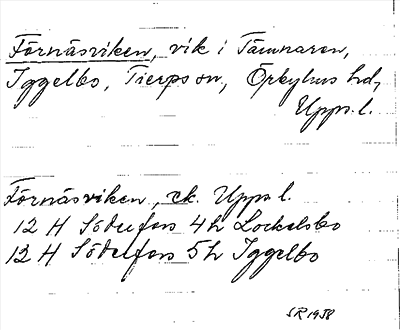 Förnäsviken, vik i Tämnaren,
Iggelbo, Tierps sn, Örbyhus hd,
Upps. l.
Förnäsviken, ek. Upps l.
12 H Söderfors 4h Lockelsbo
12 H Söderfors 5h Iggelbo
SR 1958